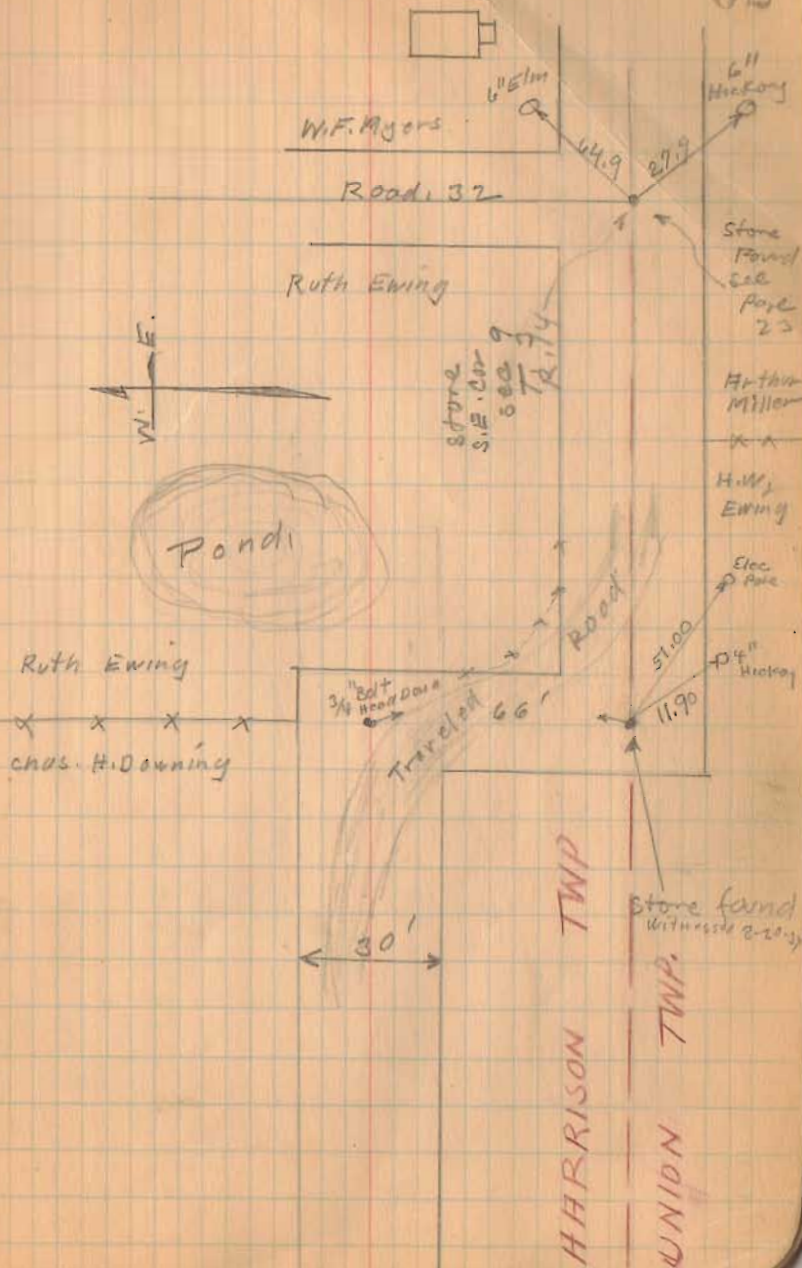 6" Elm
6"
Hickory
W.F. Myers
64.9
27.9
Road. 32
Stone
Found
See
Page
23
Ruth Ewing
Stone
S.E. Cor
Sec 9
T 7
R. 14
W. E.
Arthur
Miller
H.W.
Ewing
Pond.
Elec
Pole
Road
51.00
4"
Hickory
11.90
Ruth Ewing
3/4" Bolt
Head Down
66'
Traveled
Chas. H. Downing
Stone found
Witnessed
30'
HARRISON TWP
UNION TWP.